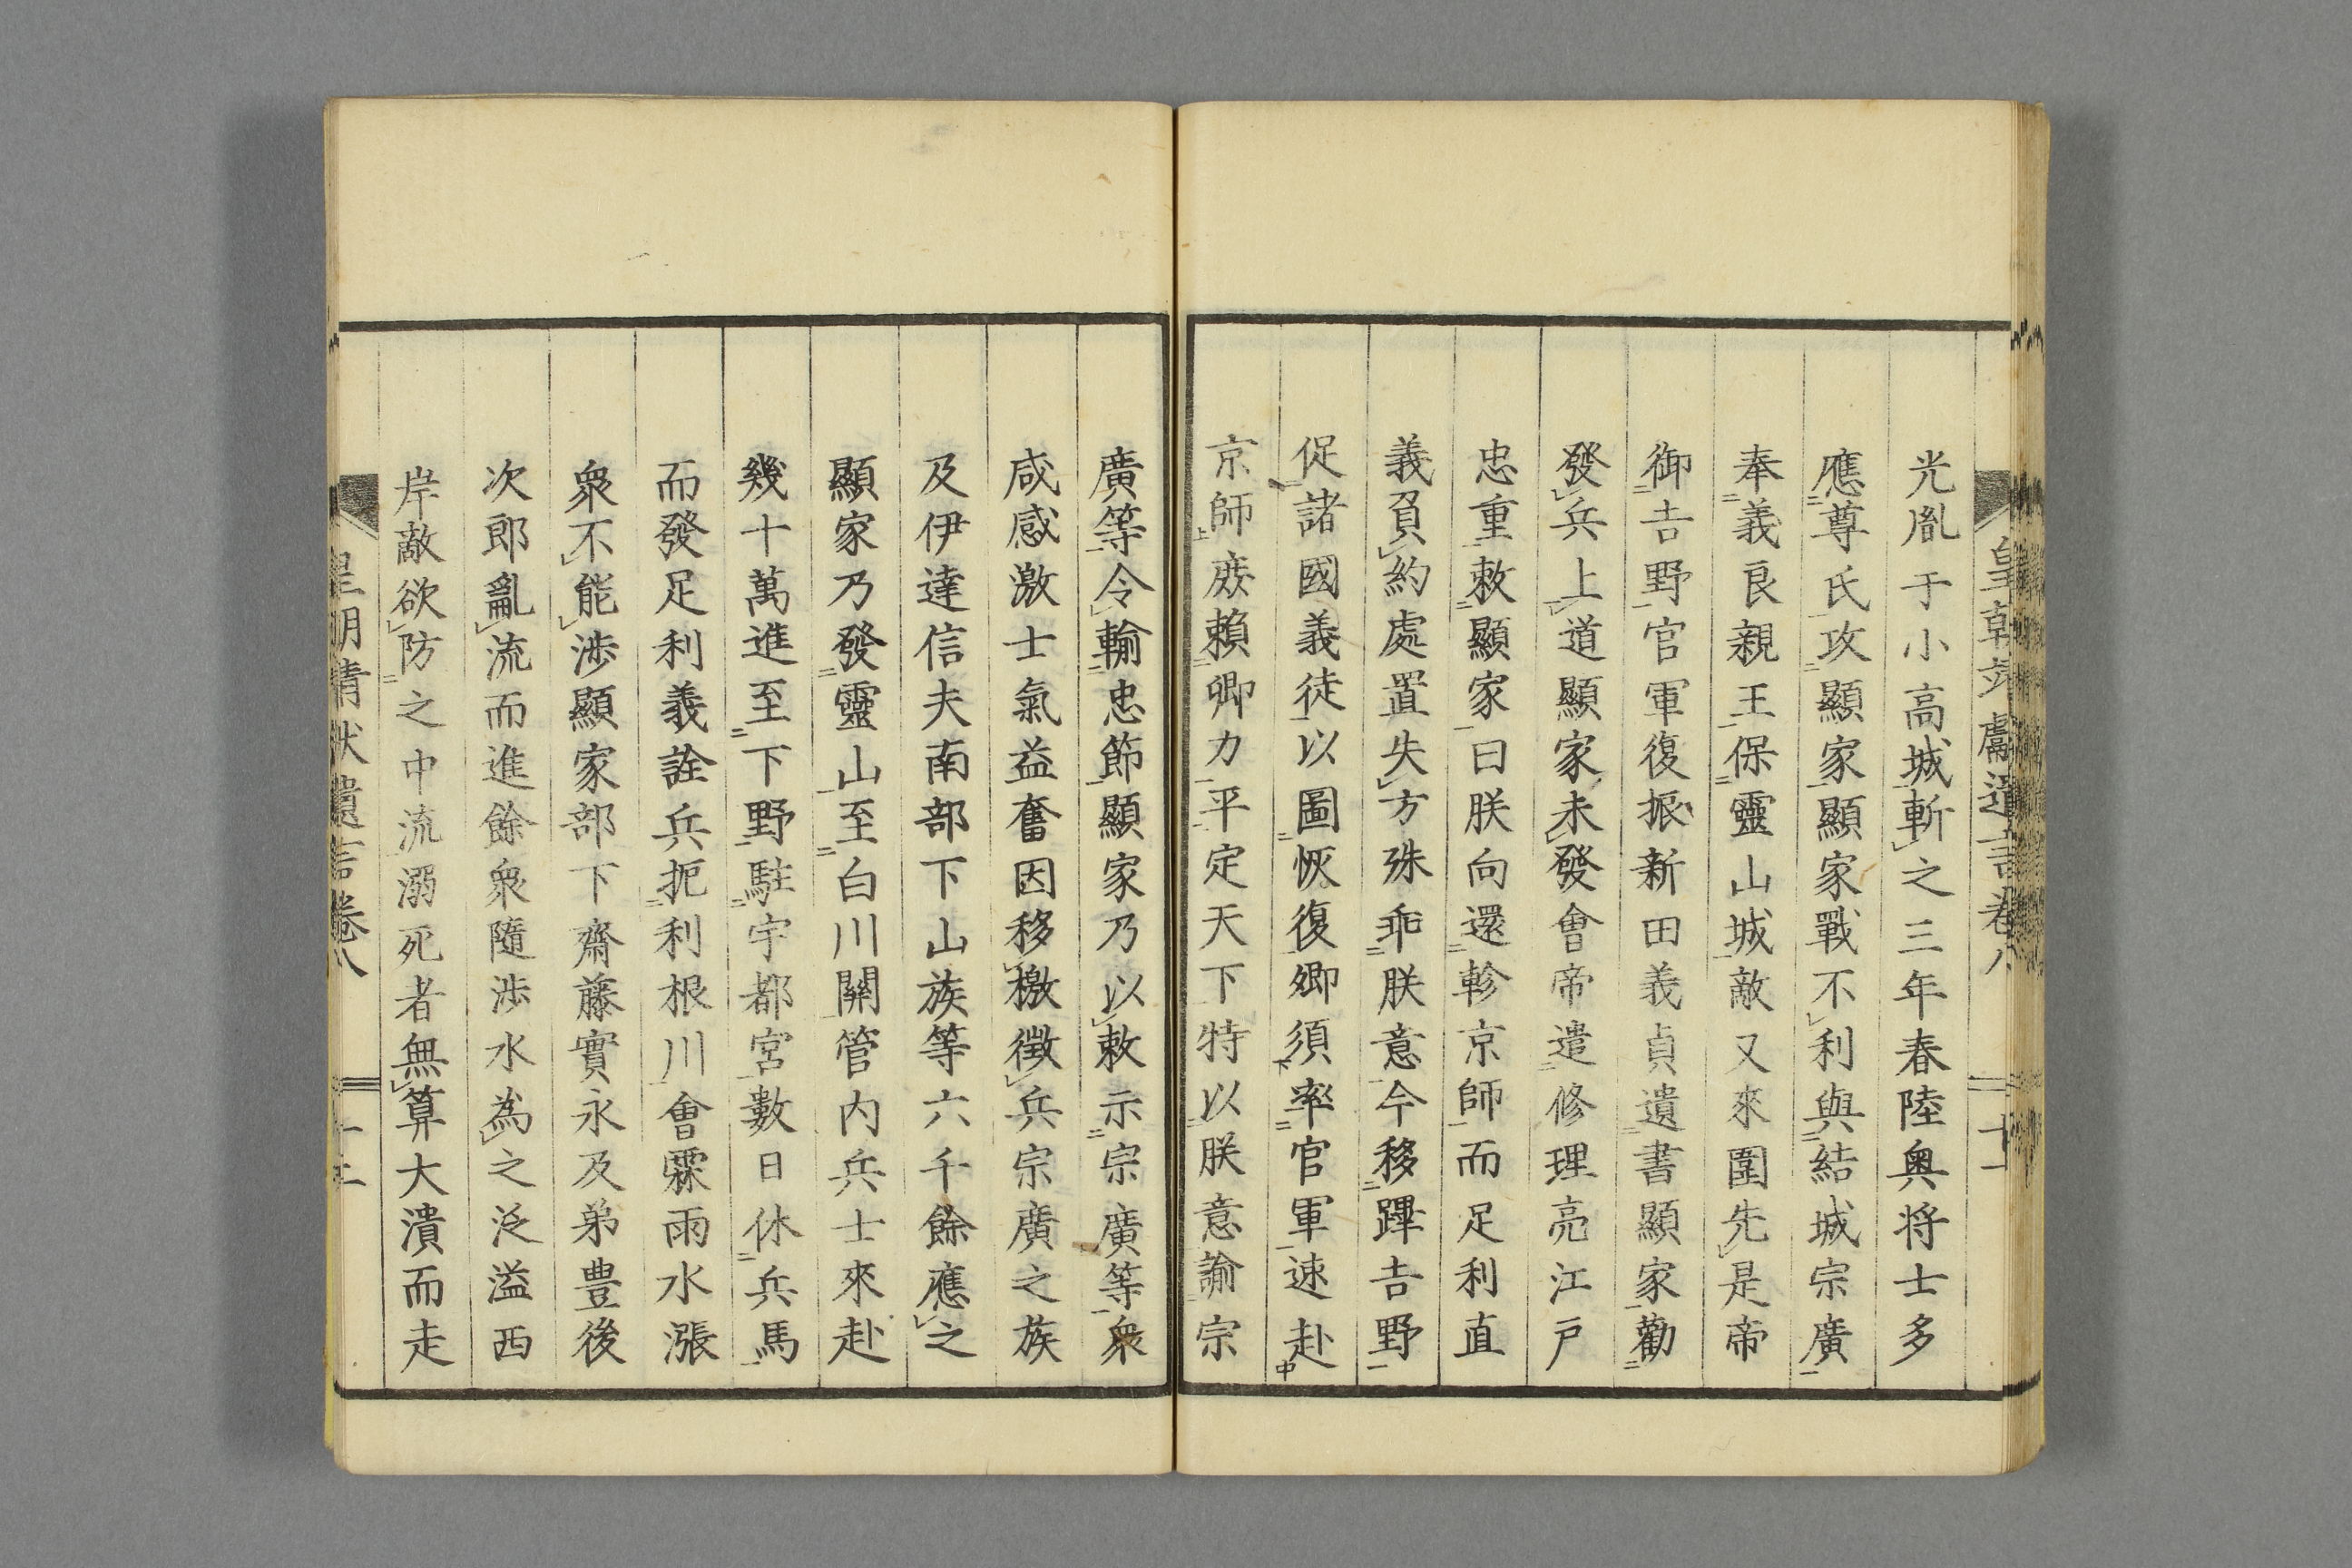 光胤于小高城斬之三年春陸奥将士多
應尊氏攻顯家顯家戰不利與結城宗廣
奉義良親王保靈山城敵又來圍先是帝
御吉野官軍復振新田義貞遺書顯家勸
發兵上道顯家未發會帝遣修理亮江戸
忠重敕顯家曰朕向還軫京師而足利直
義負約處置失方殊乖朕意今移蹕吉野
促諸國義徒以圖恢復卿須率官軍速赴
京師庶賴卿力平定天下特以朕意諭宗
廣等令輸忠節顯家乃以敕示宗廣等衆
咸感激士氣益奮因移檄徴兵宗廣之族
及伊達信夫南部下山族等六千餘應之
顯家乃發靈山至白川關管内兵士來赴
幾十萬進至下野駐宇都宮數日休兵馬
而發足利義詮兵扼利根川會霖雨水漲
衆不能渉顯家部下齋藤實永及弟豊後
次郎亂流而進餘衆隨渉水為之泛溢西
岸敵欲防之中流溺死者無算大潰而走